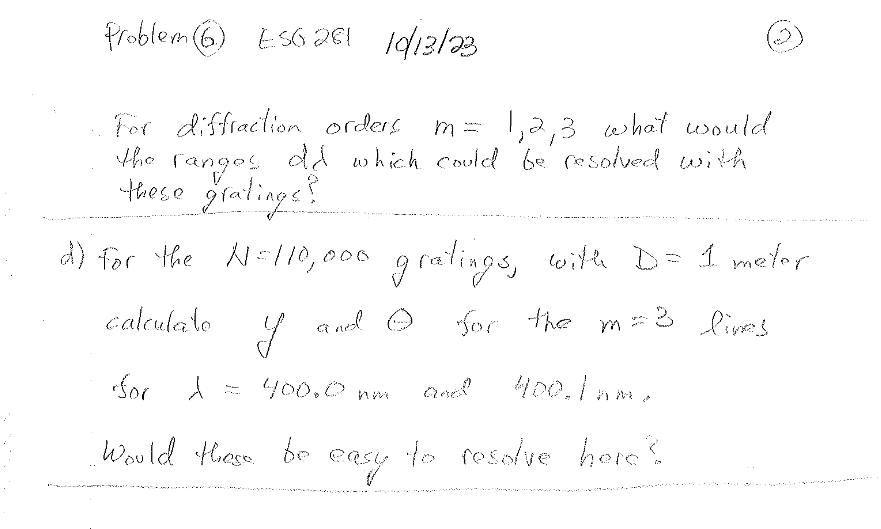 Problem (6) ESG 281 10/13/23 (2)
For diffraction orders m = 1,2,3 what would
the ranges dλ which could be resolved with
these gratings?
d) for the N=110,000 gratings, with D= 1 meter
calculate y and Θ for the m=3 lines
for λ = 400.0 nm and 400.1 nm.
Would these be easy to resolve here?